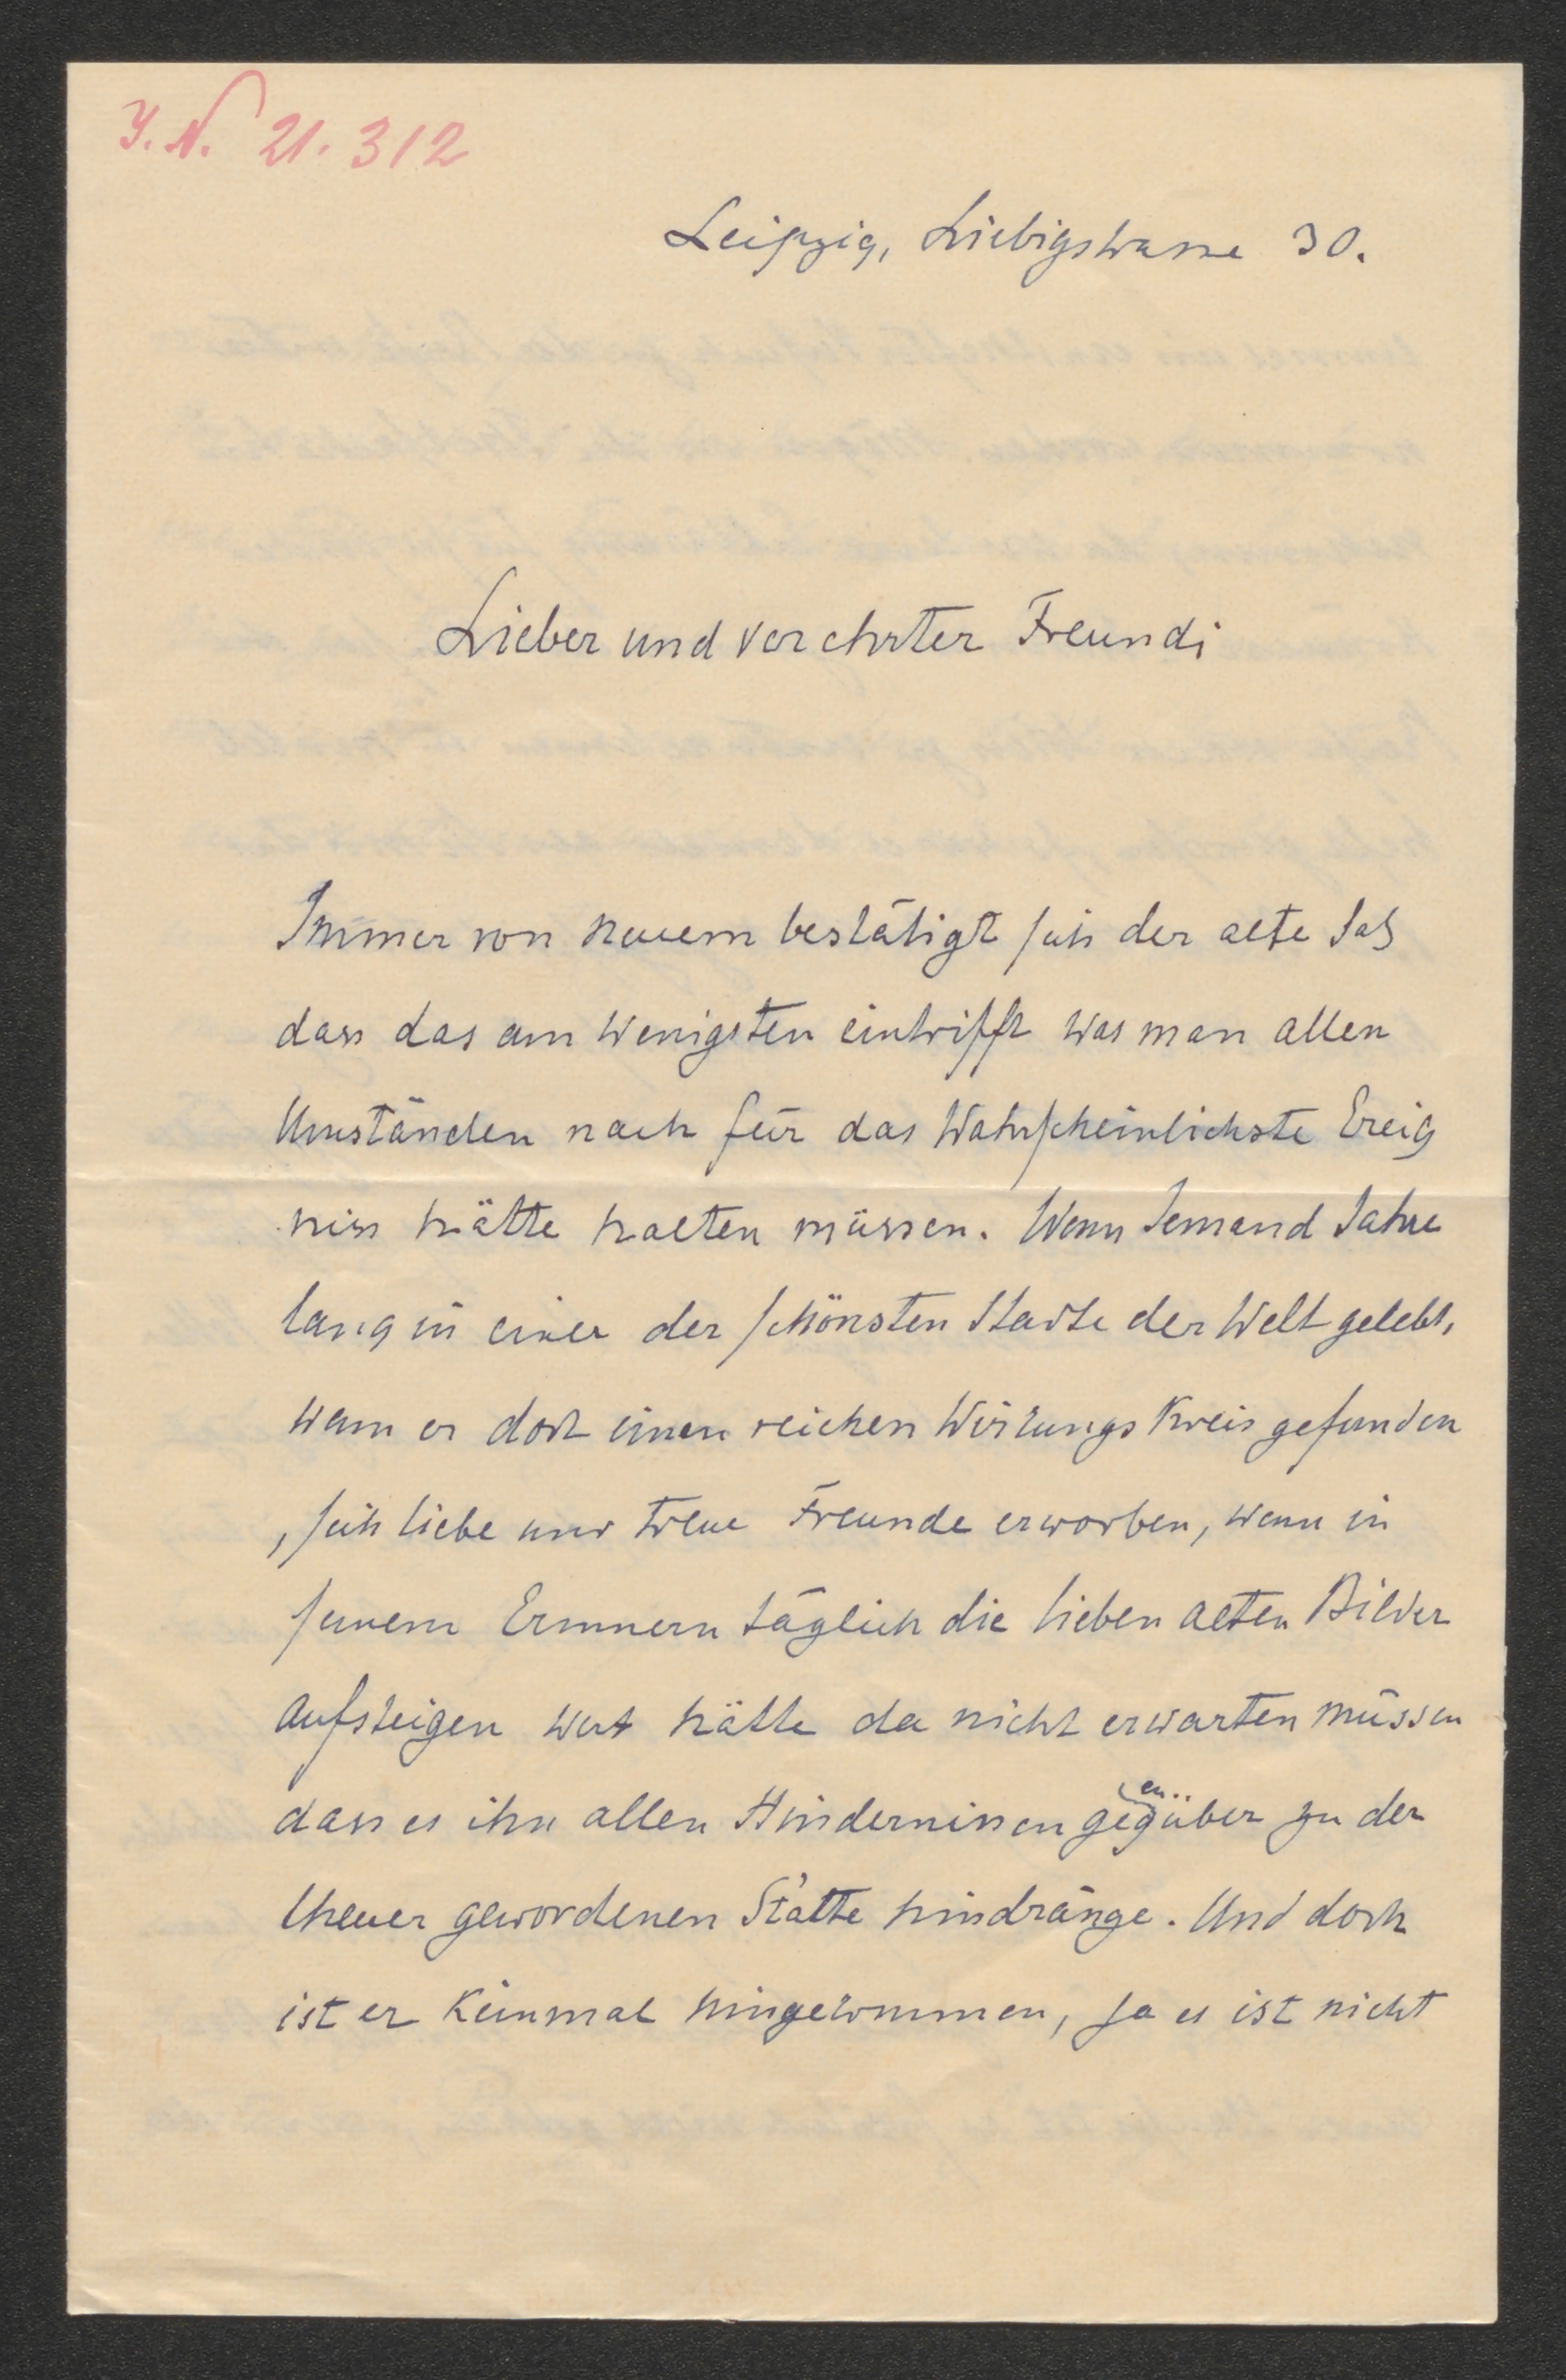 J.N. 21.312
Leipzig, Liebigstrasse 30.
Lieber und verehrter Freund;
Immer von neuem bestätigt sich der alte Satz
dass das am wenigsten eintrifft was man allen
Umständen nach für das Wahrscheinlichste Ereig
niss hätte halten müssen. Wenn Jemand Jahre
lang in einer der schönsten Städte der Welt gelebt,
wenn er dort einen reichen Wirkungskreis gefunden
, sich liebe und treue Freunde erworben, wenn in
seinem Erinnern täglich die lieben alten Bilder
aufsteigen wer hätte da nicht erwarten müssen
dass es ihn allen Hindernissen gegenüber zu der
theuer gewordenen Stätte hindränge. Und doch
ist er keinmal hingekommen, ja es ist nicht